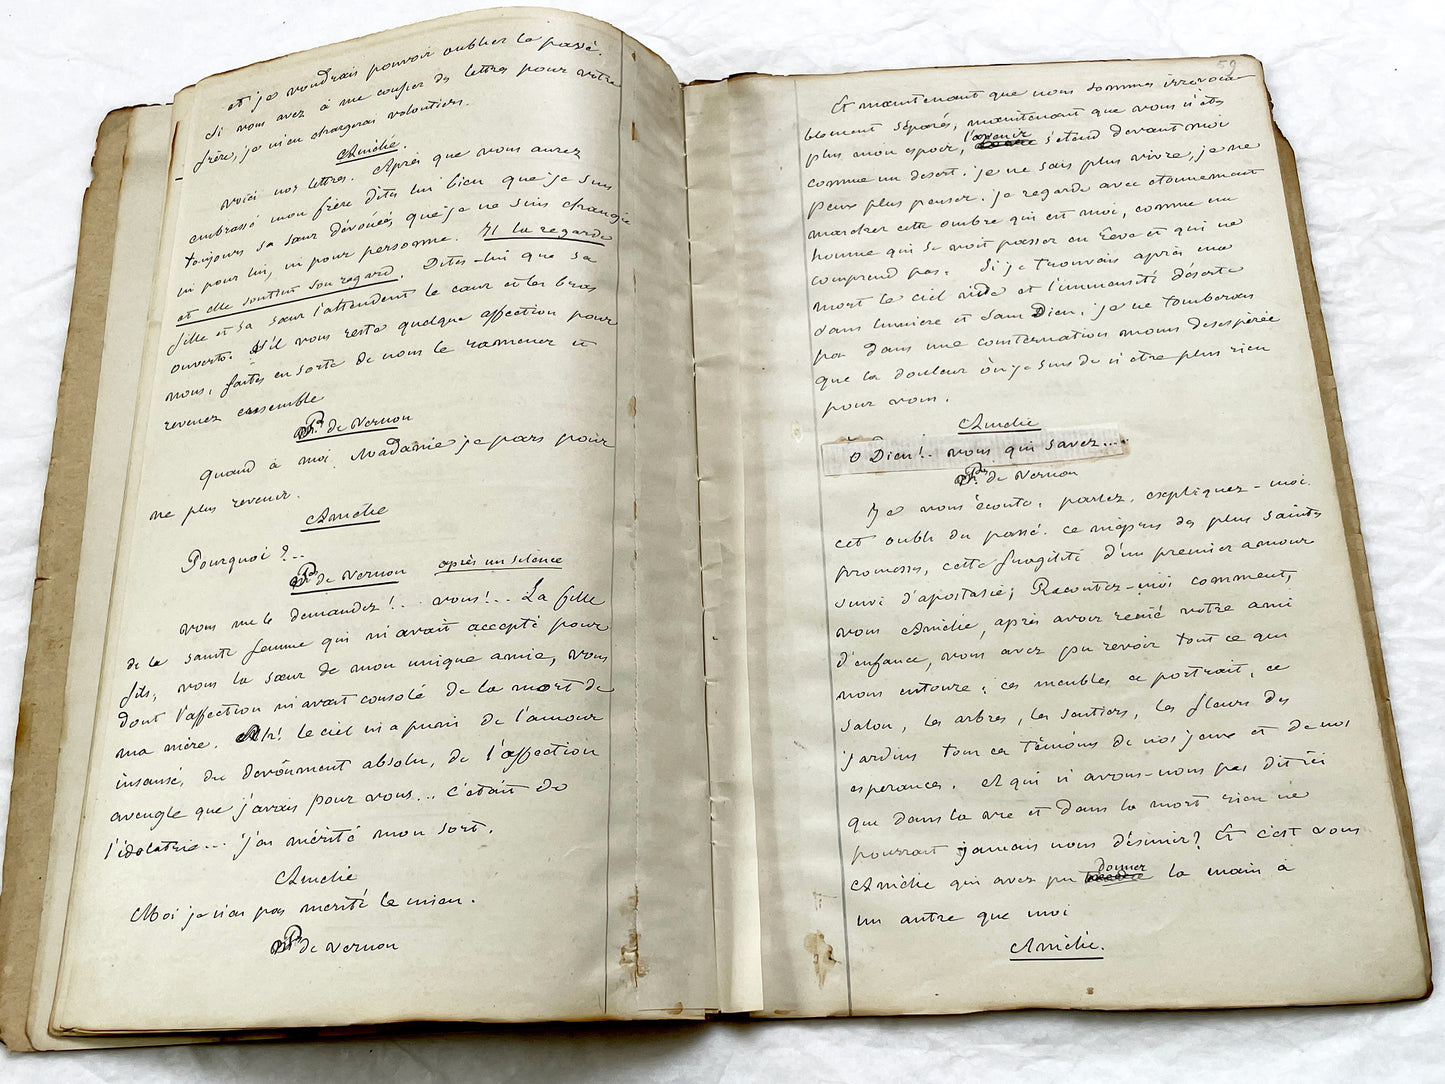 et je voudrais pouvoir oublier le passé.
Si vous avez à me confier des lettres pour votre
frère, je m'en chargerai volontiers.
Amélie.
Voici nos lettres. Après que vous aurez
embrassé mon frère dites lui bien que je suis
toujours sa sœur dévouée, que je ne suis changée
ni pour lui, ni pour personne. Il la regarde
et elle soutient son regard. Dites-lui que sa
fille et sa sœur l'attendent le cœur et les bras
ouverts. S'il vous reste quelque affection pour
nous, faites en sorte de nous le ramener et
revenez ensemble
de Vernon
Quand à moi Madame je pars pour
ne plus revenir.
Amélie
Pourquoi ?..
de Vernon après un silence
Vous me le demandez !.. vous !.. La fille
de la sainte femme qui m'avait accepté pour
fils, vous la sœur de mon unique amie, vous
dont l'affection m'avait consolé de la mort de
ma mère. Ah! le ciel m'a puni de l'amour
insensé, du dévoûment absolu, de l'affection
aveugle que j'avais pour vous... c'était de
l'idolatrie... j'ai mérité mon sort.
Amélie
Moi je n'ai pas mérité le mien.
de Vernon
59
Et maintenant que nous sommes irrévoca-
blement séparés, maintenant que vous n'êtes
plus mon espoir, l'avenir s'étend devant moi
comme un désert. je ne sais plus vivre, je ne
peux plus penser. je regarde avec étonnement
marcher cette ombre qui est moi, comme un
homme qui se voit passer en rêve et qui ne
comprend pas. Si je trouvais après ma
mort le ciel vide et l'immensité déserte
sans lumière et sans Dieu, je ne tomberais
pas dans une consternation moins desespérée
que la douleur où je suis de n'être plus rien
pour vous.
Amélie
Ô Dieu !.. vous qui savez....
de Vernon
Je vous écoute, parlez, expliquez-moi
cet oubli du passé. ce mépris des plus saintes
promesses, cette fragilité d'un premier amour
suivi d'apostasie; Racontez-moi comment,
vous Amélie, après avoir renié votre ami
d'enfance, vous avez pu revoir tout ce qui
nous entoure; ces meubles ce portrait, ce
salon, les arbres, les sentiers, les fleurs des
jardins tous ces témoins de nos jeux et de nos
esperances. et qui n'avons-nous pas dit ici
que dans la vie et dans la mort rien ne
pourrait jamais nous désunir? Et c'est vous
Amélie qui avez pu donner la main à
un autre que moi
Amélie.